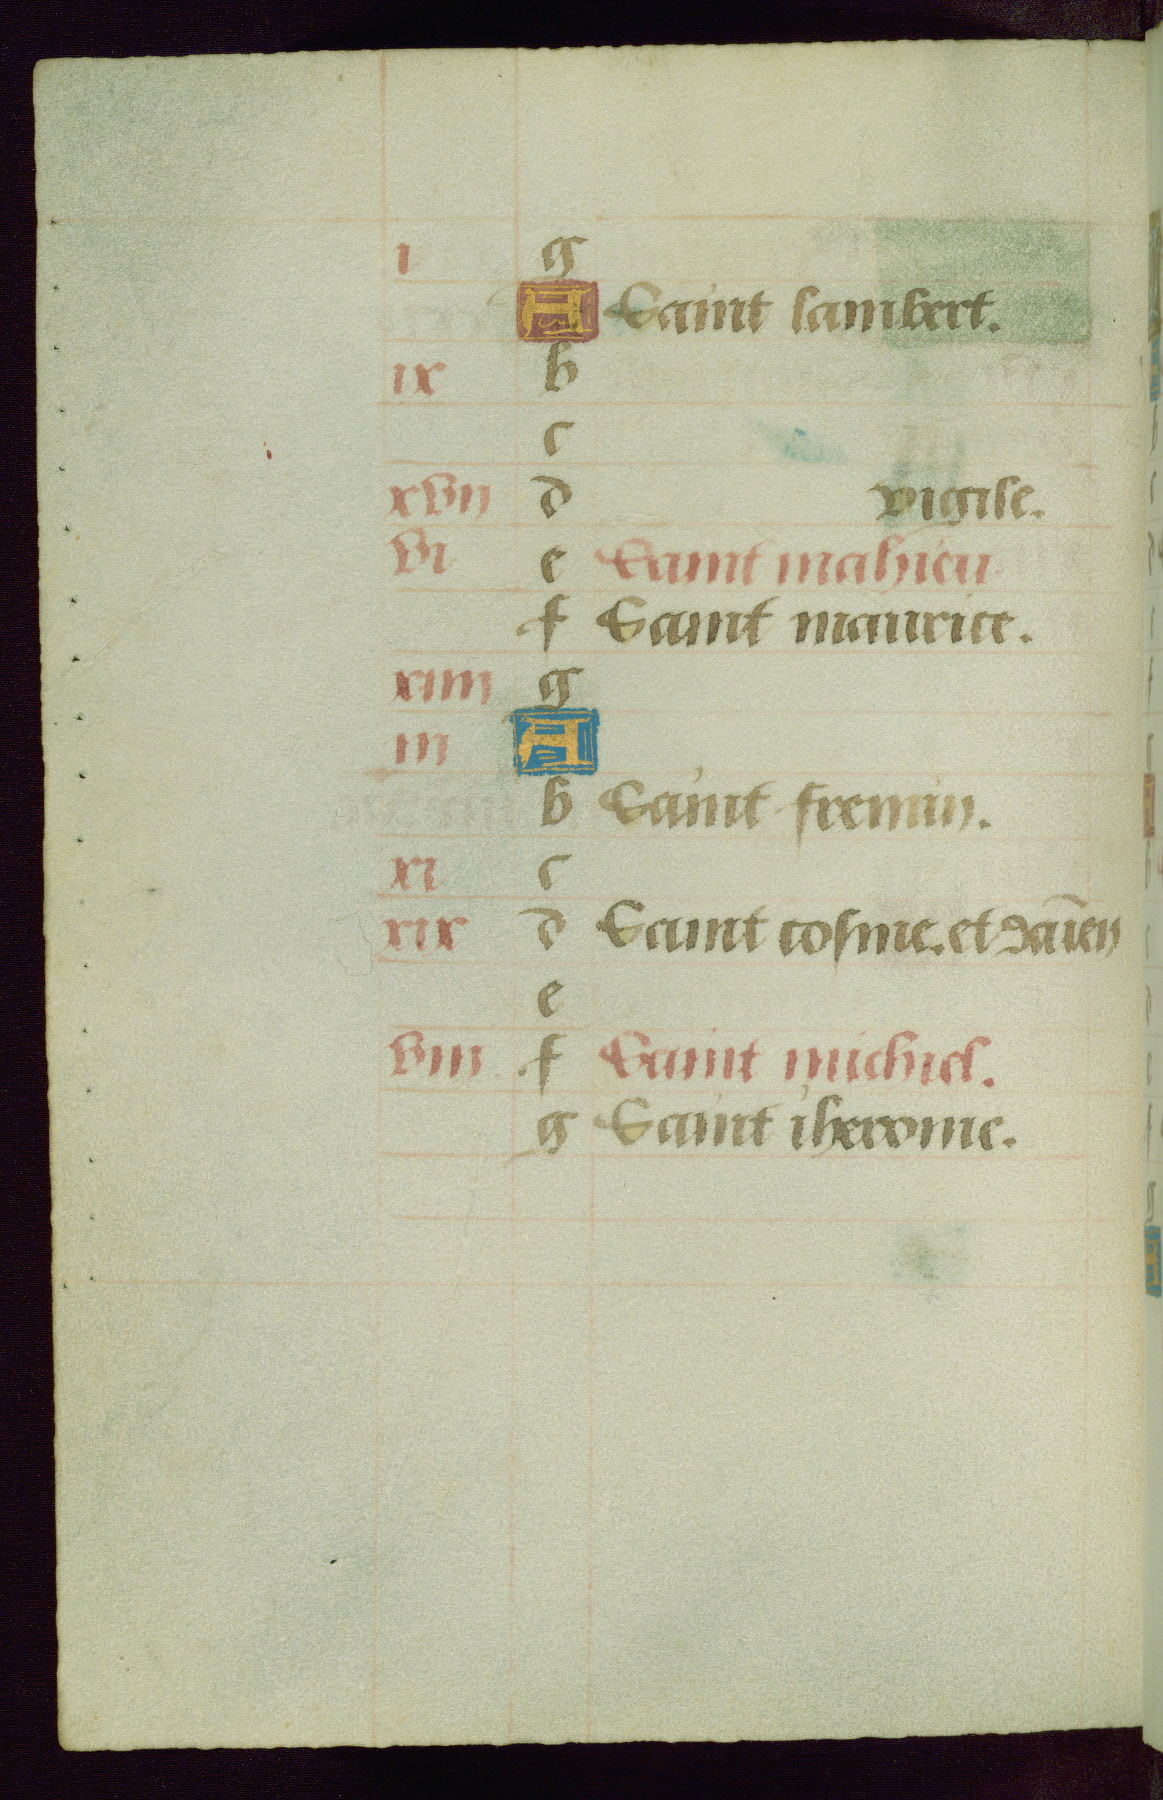 i g
A Saint lambert.
ix b
c
xvii d vigile.
vi e Saint mahieu
f Saint maurice.
xiiii g
iii A
b Saint fremin.
xi c
xix d Saint cosme. et dāien
e
viii f Saint michiel.
g Saint iherome.